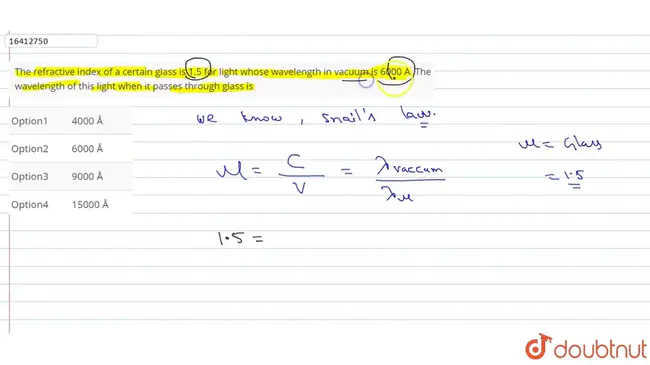 16412750
The refractive index of a certain glass is 1.5 for light whose wavelength in vacuum is 6000 Å. The
wavelength of this light when it passes through glass is
Option1 4000 Å
Option2 6000 Å
Option3 9000 Å
Option4 15000 Å
we know, snail's law.
μ = C/V = λvaccum/λμ
μ = Glass
= 1.5
1.5 =
doubtnut